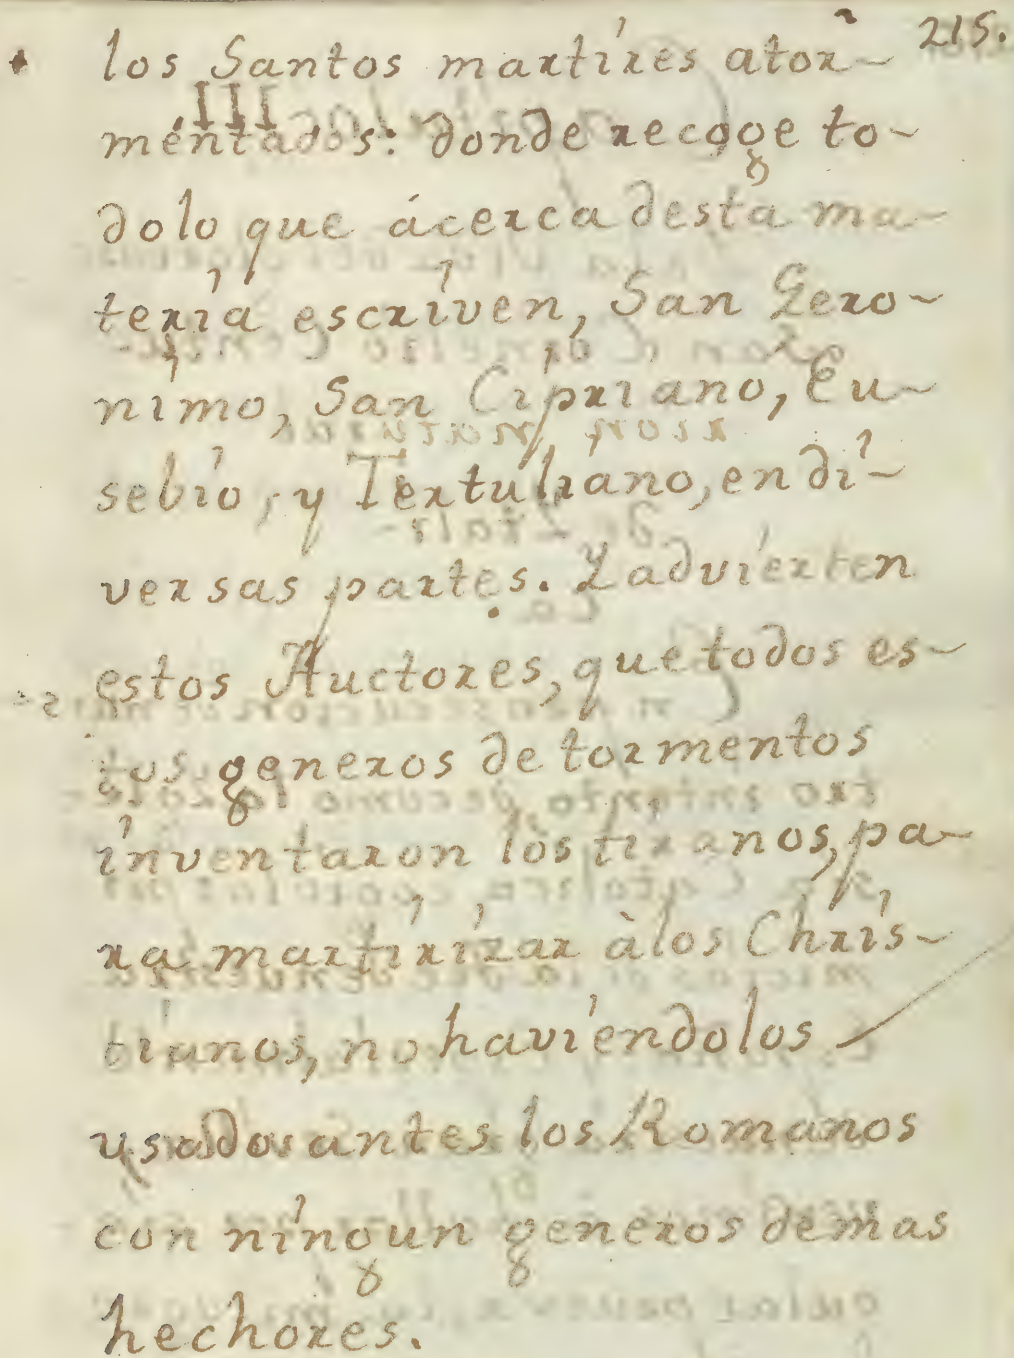 215.
los Santos martires ator~
mentados: donde recoge to~
dolo que ácerca desta ma~
teria escriven, San Gero~
nimo, San Cipriano, Eu~
sebio, y Tertuliano, en di~
versas partes. Y advierten
estos Auctores, que todos es~
tos generos de tormentos
inventaron los tiranos, pa~
ra martirizar à los Chris~
tianos, no haviendolos
usados antes los Romanos
con ningun generos de mas
hechores.